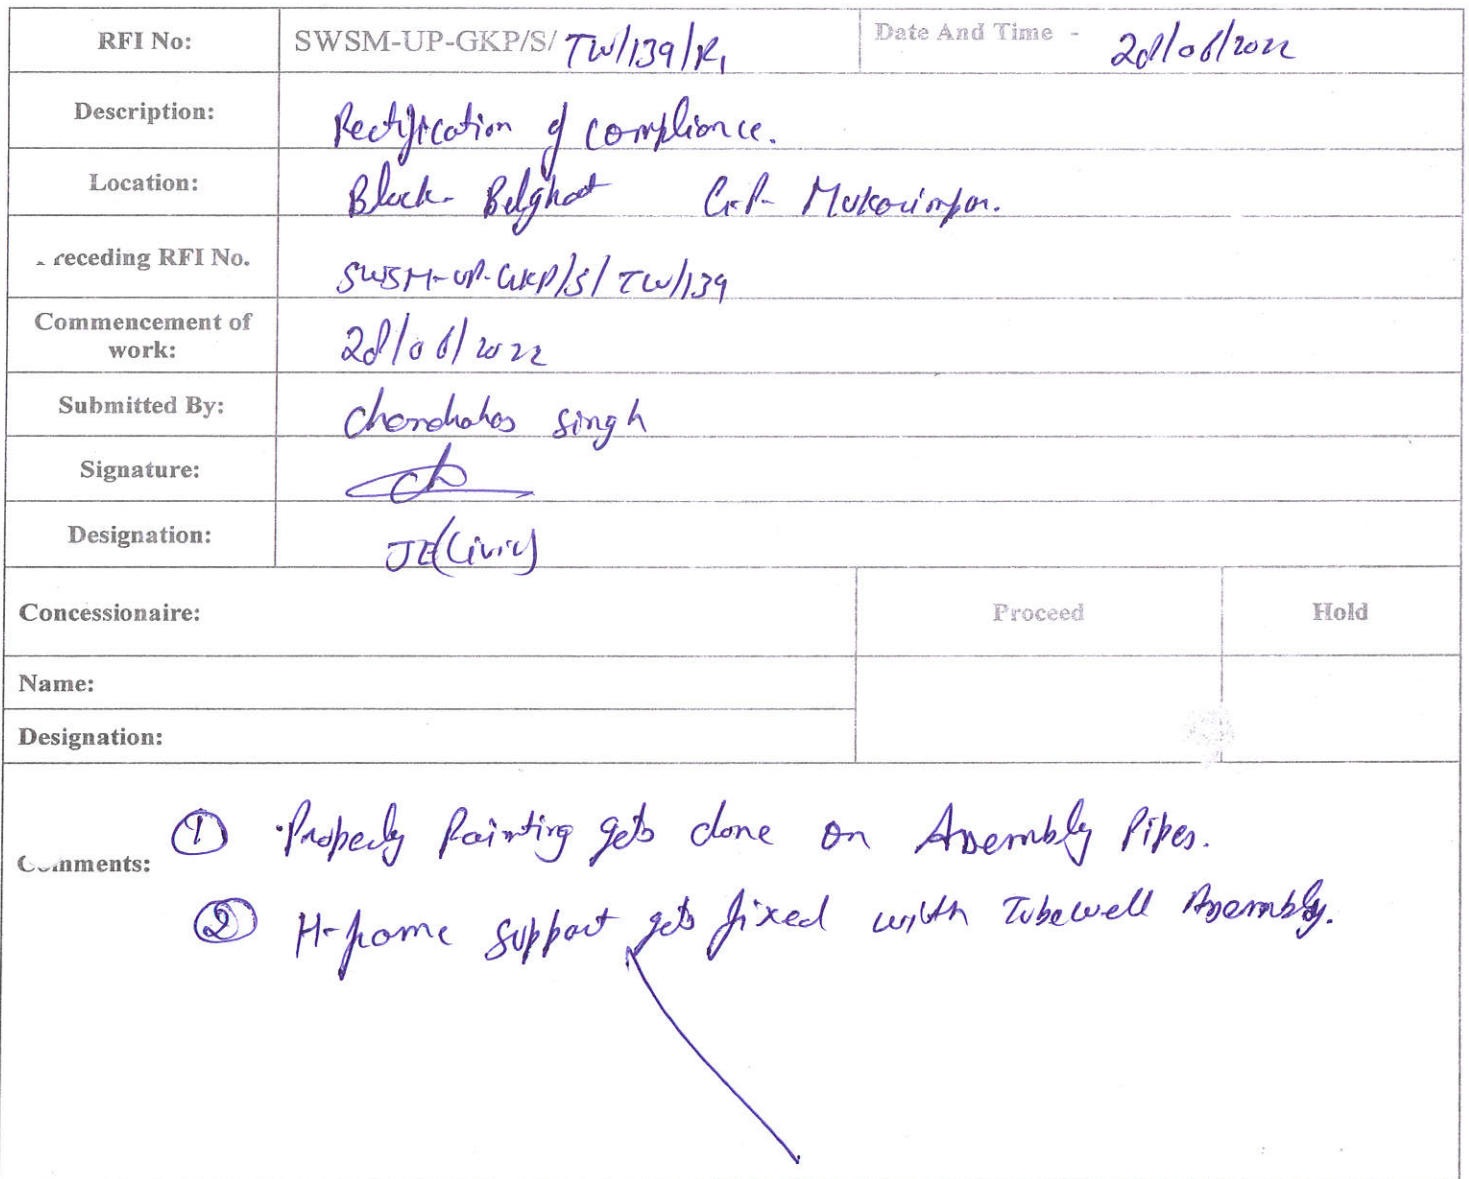 RFI No: SWSM-UP-GKP/S/ TW/139/R1 Date And Time - 28/06/2022
Description: Rectification of compliance.
Location: Block- Belghat G.P- Mukarimpur.
receding RFI No. SWSM-UP-GKP/S/TW/139
Commencement of
work: 28/06/2022
Submitted By: Chandrahas Singh
Signature:
Designation: JE(Civil)
Concessionaire: Proceed Hold
Name:
Designation:
① Properly Painting gets done on Assembly Pipes.
Comments:
② H-frame support gets fixed with Tubewell Assembly.